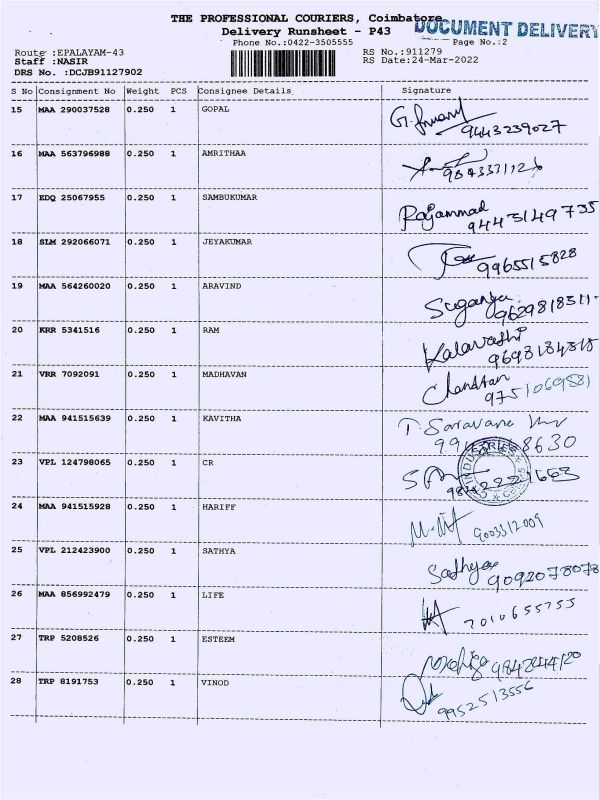 THE PROFESSIONAL COURIERS, Coimbatore
DOCUMENT DELIVERY
Delivery Runsheet - P43
Phone No.:0422-3505555
Page No.:2
Route :EPALAYAM-43
RS No.:911279
Staff :NASIR
RS Date:24-Mar-2022
DRS No. :DCJB91127902
S No Consignment No Weight PCS Consignee Details Signature
15 MAA 290037528 0.250 1 GOPAL 9443239027
16 MAA 563796988 0.250 1 AMRITHAA
17 EDQ 25067955 0.250 1 SAMBUKUMAR Rajammal 9443149735
18 SLM 292066071 0.250 1 JEYAKUMAR 9965515828
19 MAA 564260020 0.250 1 ARAVIND Suganya 9629818511
20 KRR 5341516 0.250 1 RAM Kalavathi
21 VRR 7092091 0.250 1 MADHAVAN Chandran 9751069581
22 MAA 941515639 0.250 1 KAVITHA T. Saravana
23 VPL 124798065 0.250 1 CR
24 MAA 941515928 0.250 1 HARIFF 9003312009
25 VPL 212423900 0.250 1 SATHYA Sathya 9092078078
26 MAA 856992479 0.250 1 LIFE 7010655753
27 TRP 5208526 0.250 1 ESTEEM
28 TRP 8191753 0.250 1 VINOD 9952513556